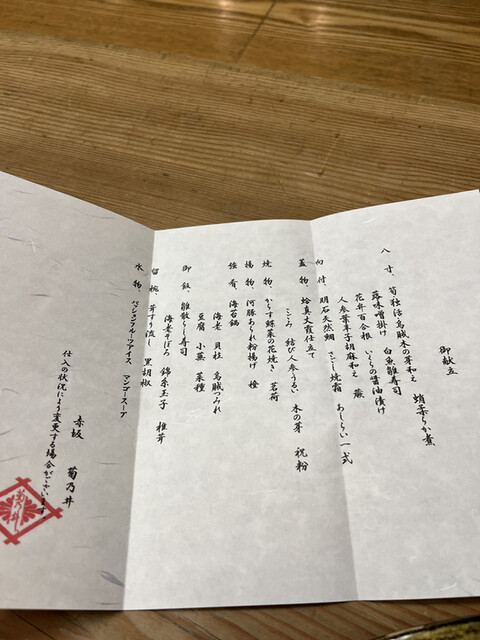 御献立
八寸、筍独活烏賊木の芽和え 蛸柔らか煮
蕗味噌掛け 白魚雛寿司
花弁百合根 いくらの醤油漬け
人参葉辛子胡麻和え 蕨
向付、明石天然鯛 さごし焼霜 あしらい一式
蓋物、蛤真丈霞仕立て
こごみ 結び人参うるい 木の芽 祝粉
焼物、からす鰈菜の花焼き 茗荷
揚物、河豚あられ粉揚げ 橙
強肴、海苔鍋
海老 貝柱 烏賊つみれ
豆腐 小蕪 菜種
御飯、雛散らし寿司
海老そぼろ 錦糸玉子 椎茸
留椀、芹すり流し 黒胡椒
水物、パッションフルーツアイス マンゴースープ
赤坂 菊乃井
仕入の状況により変更する場合がございます
菊乃井